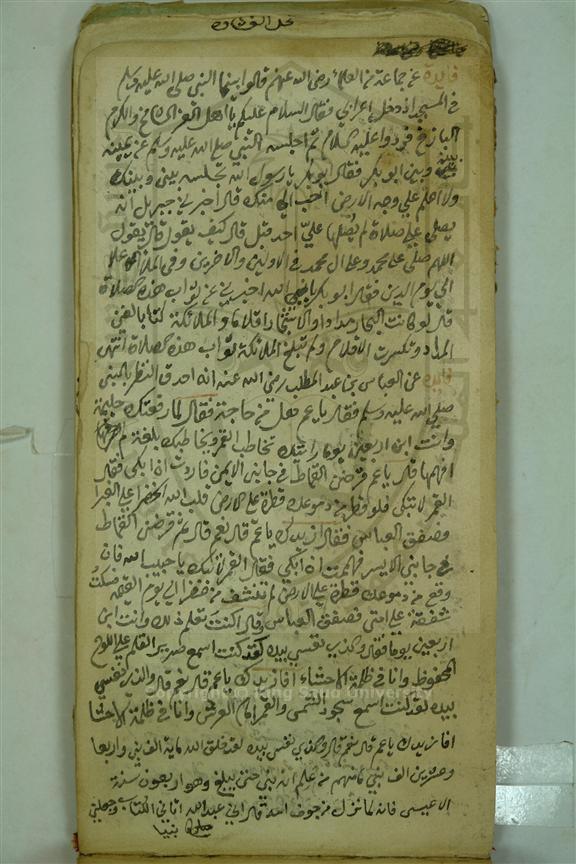 فايده عن جماعة من العلماء رضى الله عنهم قالوا بينما النبى صلى الله عليه وسلم
فى المسجد اذ دخل اعرابي فقال السلام عليكم يا اهل العز الشامخ والكرم
الباذخ فردوا عليه السلام ثم اجلسه النبي صلى الله عليه وسلم عن يمينه
بينه وبين ابو بكر فقال ابو بكر يا رسول الله تجلسه بينى وبينك
ولا اعلم على وجه الارض احب الي منك قال اخبرني جبريل انه
يصلى على صلاة لم يصلها علي احد قبل قال كيف يقول قال يقول
اللهم صلى على محمد وعلى ال محمد فى الاولين والاخرين وفى الملأ الاعلا
الي يوم الدين فقال ابو بكر يا نبي الله اخبرني عن ثواب هذه الصلاة
قال لو كانت البحار مدادا والاشجار اقلاما والملائكة كتابا لفني
المداد وتكسرت الاقلام ولم تبلغ الملائكة ثواب هذه الصلاة انتهى
فايده عن العباس بن عبد المطلب رضى الله عنه انه احدق النظر بالنبى
صلى الله عليه وسلم فقال يا عم هل من حاجة فقال لما رضعتك حليمة
وانت ابن اربعين يوما رايتك تخاطب القمر ويخاطبك بلغة لم
افهمها قال يا عم قرضنى القماط فى جانبى الايمن فاردت ان ابكى فقال
القمر لا تبكى فلو قطر من دموعك قطرة على الارض قلب الله الخضرا على الغبرا
وصفق العباس فقال ازيدك يا عم قال نعم قال ثم قرضنى القماط
فى جانبى الايسر فهممت ان ابكى فقال القمر لا تبك يا حبيب الله فان
وقع من دموعك قطرة على الارض لم تنشف من خضرا الى يوم القيمه فسكت
شفقة على امتى فصفق العباس وقال اكنت تعلم ذلك وانت ابن
اربعين يوما فقال والذى نفسى بيده لقد كنت اسمع صرير القلم على اللوح
المحفوظ وانا فى ظلمة الاحشاء افازيدك يا عم قال نعم قال والذى نفسي
بيده لقد كنت اسمع سجود الشمس والقمر امام العرش وانا فى ظلمة الاحشا
افازيدك يا عم قال نعم قال والذى نفسى بيده لقد خلق الله ماية الف نبي واربعا
وعشرين الف نبي ما منهم من علم انه نبي حتى يبلغ وهو اربعون سنة
الا عيسى فانه لما نزل من جوف امه قال انى عبد الله اتانى الكتاب وجعلنى
نبيا
Copyright © King Saud University